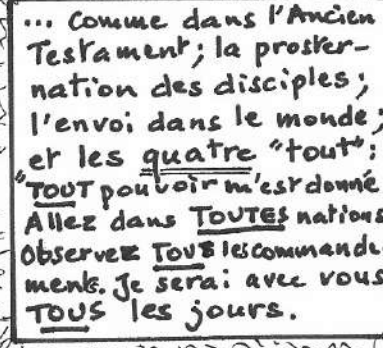 ... Comme dans l'Ancien
Testament; la proster-
nation des disciples;
l'envoi dans le monde;
et les quatre "tout":
"TOUT pouvoir m'est donné
Allez dans TOUTES nations
Observez TOUS les commande-
ments. Je serai avec vous
TOUS les jours.